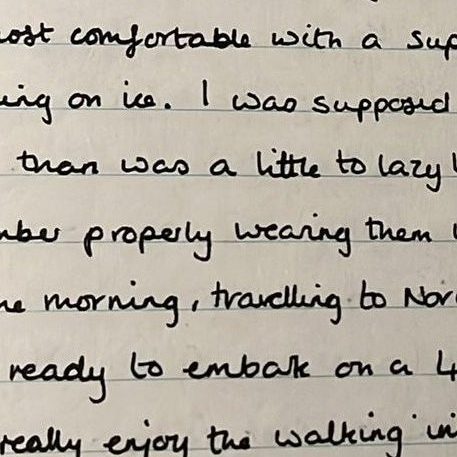 ost comfortable with a sup
ing on ice. I was supposed
than was a little to lazy
mber properly wearing them
ne morning, travelling to Nor
ready to embark on a 4
really enjoy the walking in